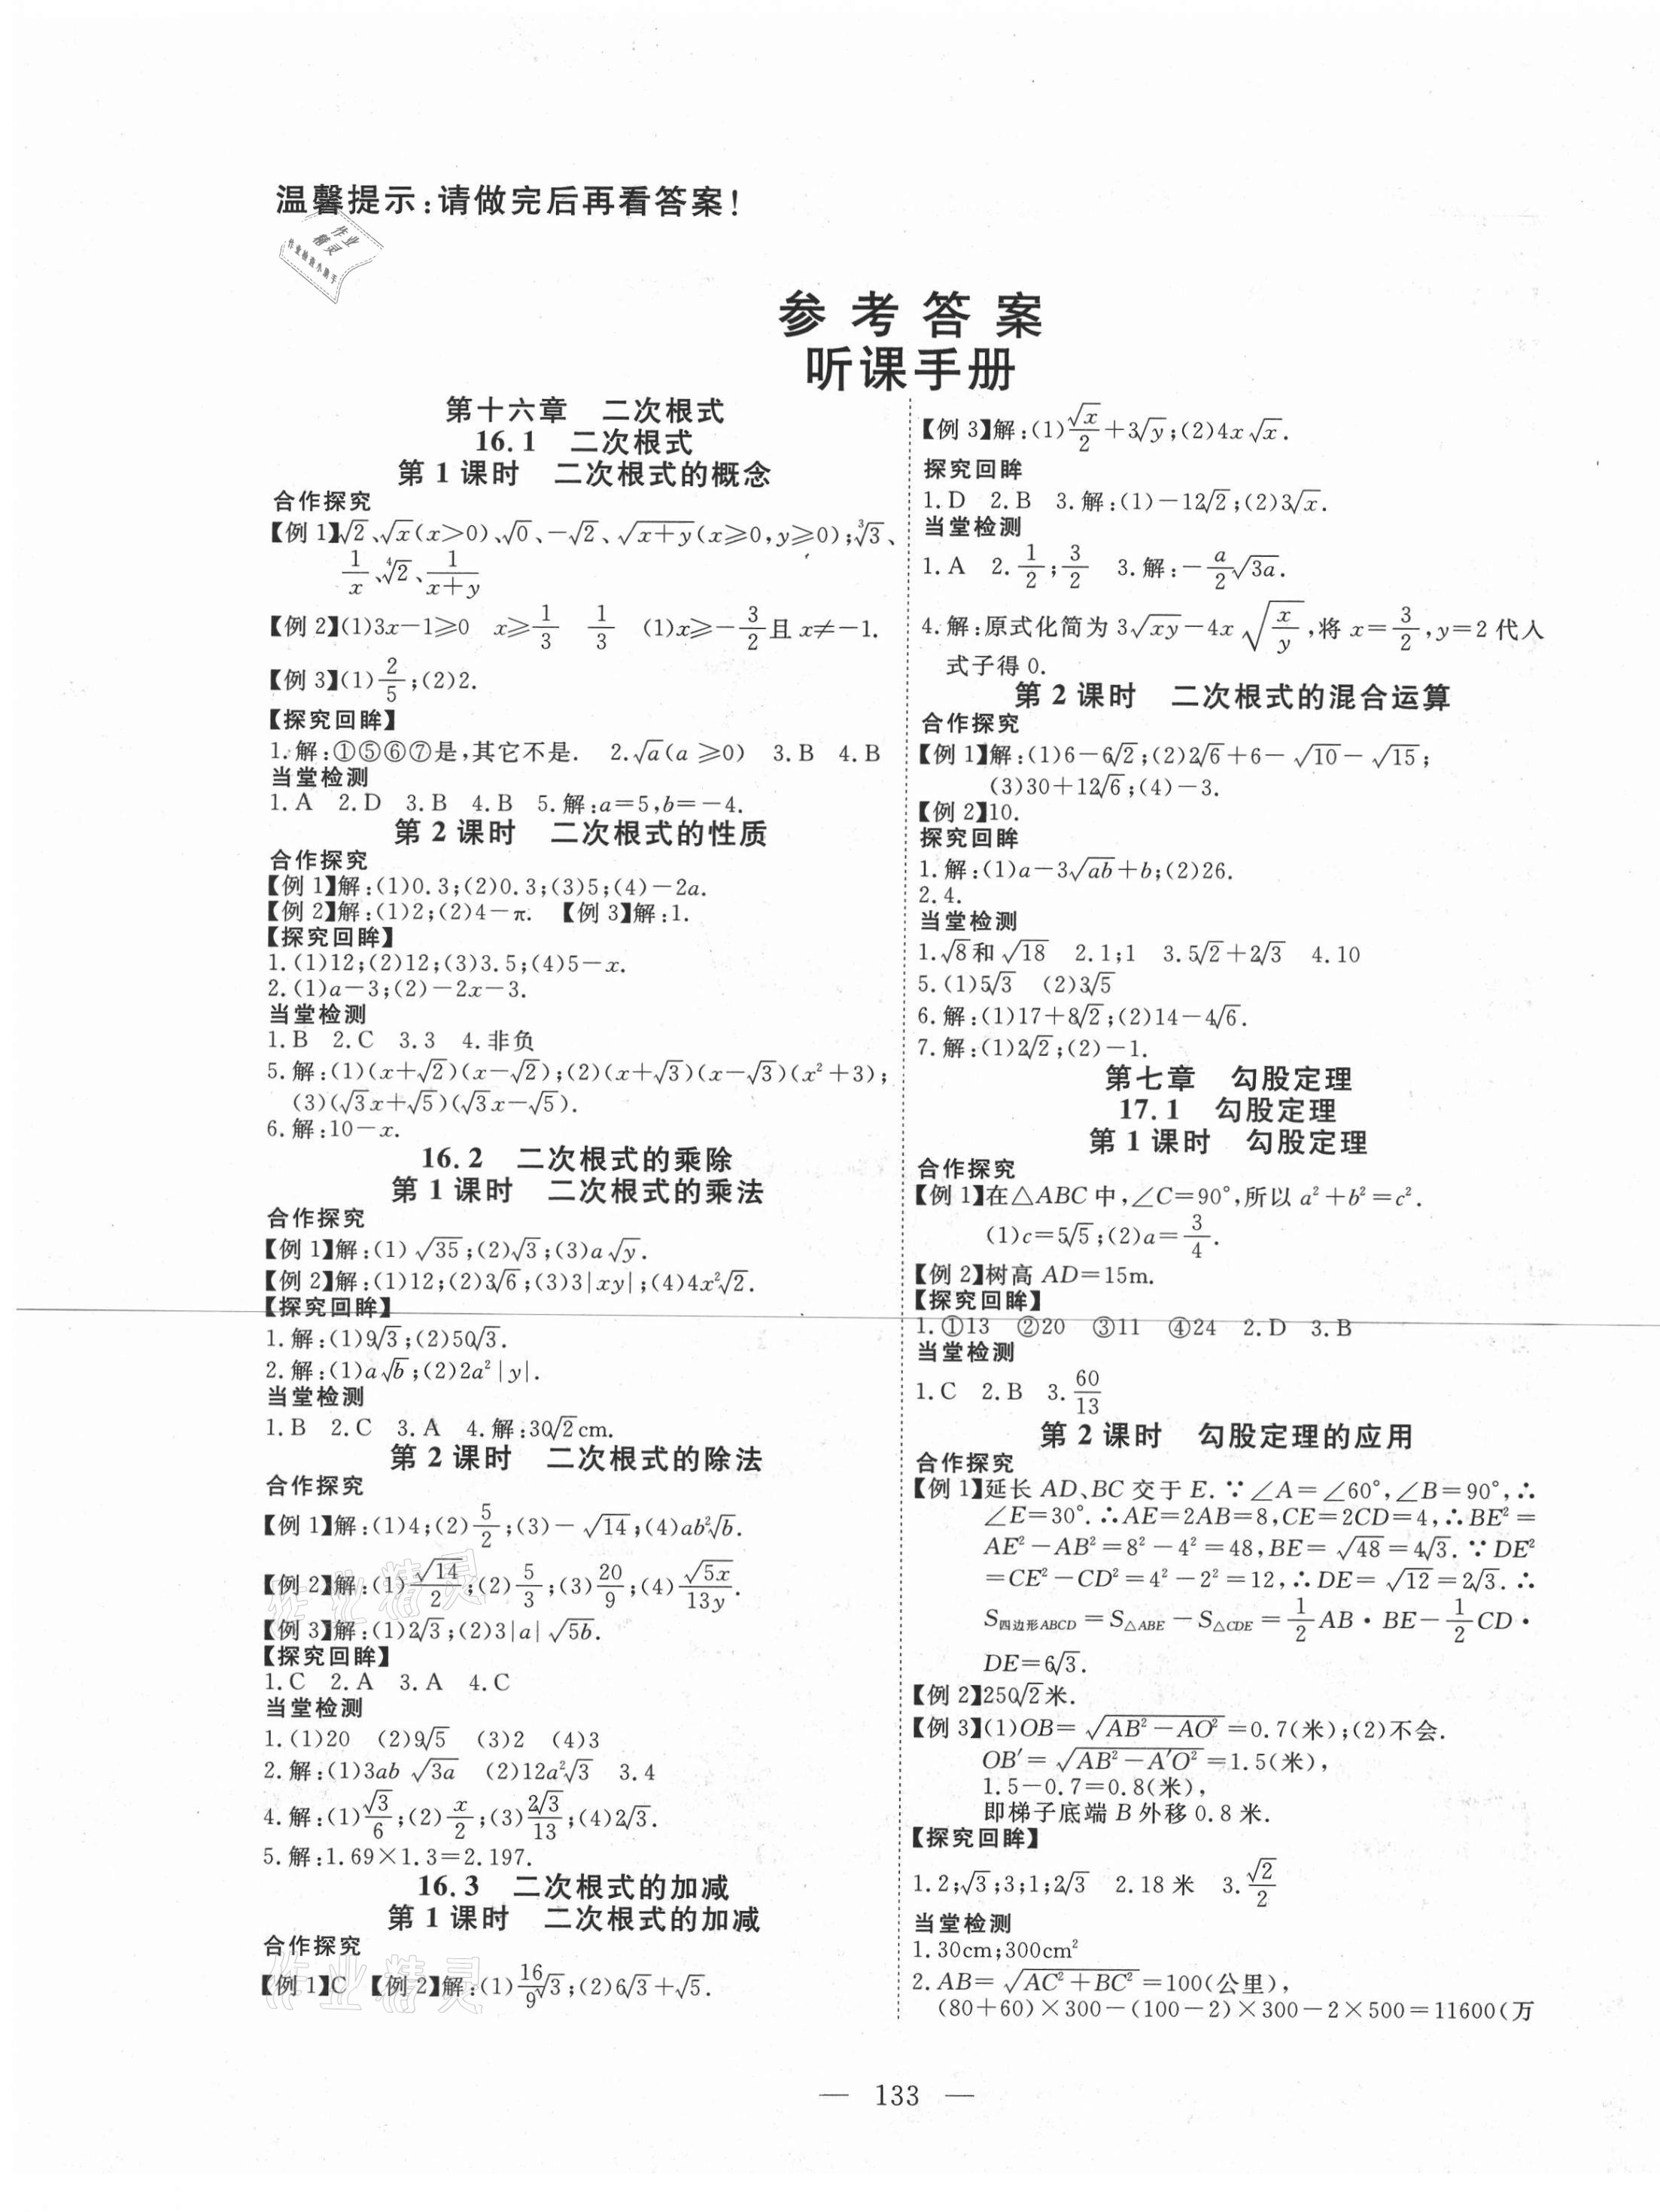 温馨提示:请做完后再看答案!
作业
精灵
作业检查小助手
参考答案
听课手册
第十六章 二次根式
16.1 二次根式
第1课时 二次根式的概念
合作探究
【例1】√2、√x(x>0)、√0、-√2、√(x+y)(x≥0,y≥0);∛3、
1/x、∜2、1/(x+y)
【例2】(1)3x-1≥0 x≥1/3 1/3 (1)x≥-3/2且x≠-1.
【例3】(1)2/5;(2)2.
【探究回眸】
1.解:①⑤⑥⑦是,其它不是. 2.√a(a≥0) 3.B 4.B
当堂检测
1.A 2.D 3.B 4.B 5.解:a=5,b=-4.
第2课时 二次根式的性质
合作探究
【例1】解:(1)0.3;(2)0.3;(3)5;(4)-2a.
【例2】解:(1)2;(2)4-π. 【例3】解:1.
【探究回眸】
1.(1)12;(2)12;(3)3.5;(4)5-x.
2.(1)a-3;(2)-2x-3.
当堂检测
1.B 2.C 3.3 4.非负
5.解:(1)(x+√2)(x-√2);(2)(x+√3)(x-√3)(x²+3);
(3)(√3x+√5)(√3x-√5).
6.解:10-x.
16.2 二次根式的乘除
第1课时 二次根式的乘法
合作探究
【例1】解:(1)√35;(2)√3;(3)a√y.
【例2】解:(1)12;(2)3√6;(3)3|xy|;(4)4x²√2.
【探究回眸】
1.解:(1)9√3;(2)50√3.
2.解:(1)a√b;(2)2a²|y|.
当堂检测
1.B 2.C 3.A 4.解:30√2cm.
第2课时 二次根式的除法
合作探究
【例1】解:(1)4;(2)5/2;(3)-√14;(4)ab²√b.
【例2】解:(1)√14/2;(2)5/3;(3)20/9;(4)√5x/13y.
【例3】解:(1)2√3;(2)3|a|√5b.
【探究回眸】
1.C 2.A 3.A 4.C
当堂检测
1.(1)20 (2)9√5 (3)2 (4)3
2.解:(1)3ab√3a (2)12a²√3 3.4
4.解:(1)√3/6;(2)x/2;(3)2√3/13;(4)2√3.
5.解:1.69×1.3=2.197.
16.3 二次根式的加减
第1课时 二次根式的加减
合作探究
【例1】C 【例2】解:(1)16/9√3;(2)6√3+√5.
【例3】解:(1)√x/2+3√y;(2)4x√x.
探究回眸
1.D 2.B 3.解:(1)-12√2;(2)3√x.
当堂检测
1.A 2.1/2;3/2 3.解:-a/2√3a.
4.解:原式化简为3√xy-4x√(x/y),将x=3/2,y=2代入
式子得0.
第2课时 二次根式的混合运算
合作探究
【例1】解:(1)6-6√2;(2)2√6+6-√10-√15;
(3)30+12√6;(4)-3.
【例2】10.
探究回眸
1.解:(1)a-3√ab+b;(2)26.
2.4.
当堂检测
1.√8和√18 2.1;1 3.5√2+2√3 4.10
5.(1)5√3 (2)3√5
6.解:(1)17+8√2;(2)14-4√6.
7.解:(1)2√2;(2)-1.
第七章 勾股定理
17.1 勾股定理
第1课时 勾股定理
合作探究
【例1】在△ABC中,∠C=90°,所以a²+b²=c².
(1)c=5√5;(2)a=3/4.
【例2】树高AD=15m.
【探究回眸】
1.①13 ②20 ③11 ④24 2.D 3.B
当堂检测
1.C 2.B 3.60/13
第2课时 勾股定理的应用
合作探究
【例1】延长AD、BC交于E.∵∠A=∠60°,∠B=90°,∴
∠E=30°.∴AE=2AB=8,CE=2CD=4,∴BE²=
AE²-AB²=8²-4²=48,BE=√48=4√3.∵DE²
=CE²-CD²=4²-2²=12,∴DE=√12=2√3.∴
S四边形ABCD=S△ABE-S△CDE=1/2AB·BE-1/2CD·
DE=6√3.
【例2】250√2米.
【例3】(1)OB=√(AB²-AO²)=0.7(米);(2)不会.
OB′=√(AB²-A′O²)=1.5(米),
1.5-0.7=0.8(米),
即梯子底端B外移0.8米.
【探究回眸】
1.2;√3;3;1;2√3 2.18米 3.√2/2
当堂检测
1.30cm;300cm²
2.AB=√(AC²+BC²)=100(公里),
(80+60)×300-(100-2)×300-2×500=11600(万
作业精灵
作业精灵
— 133 —